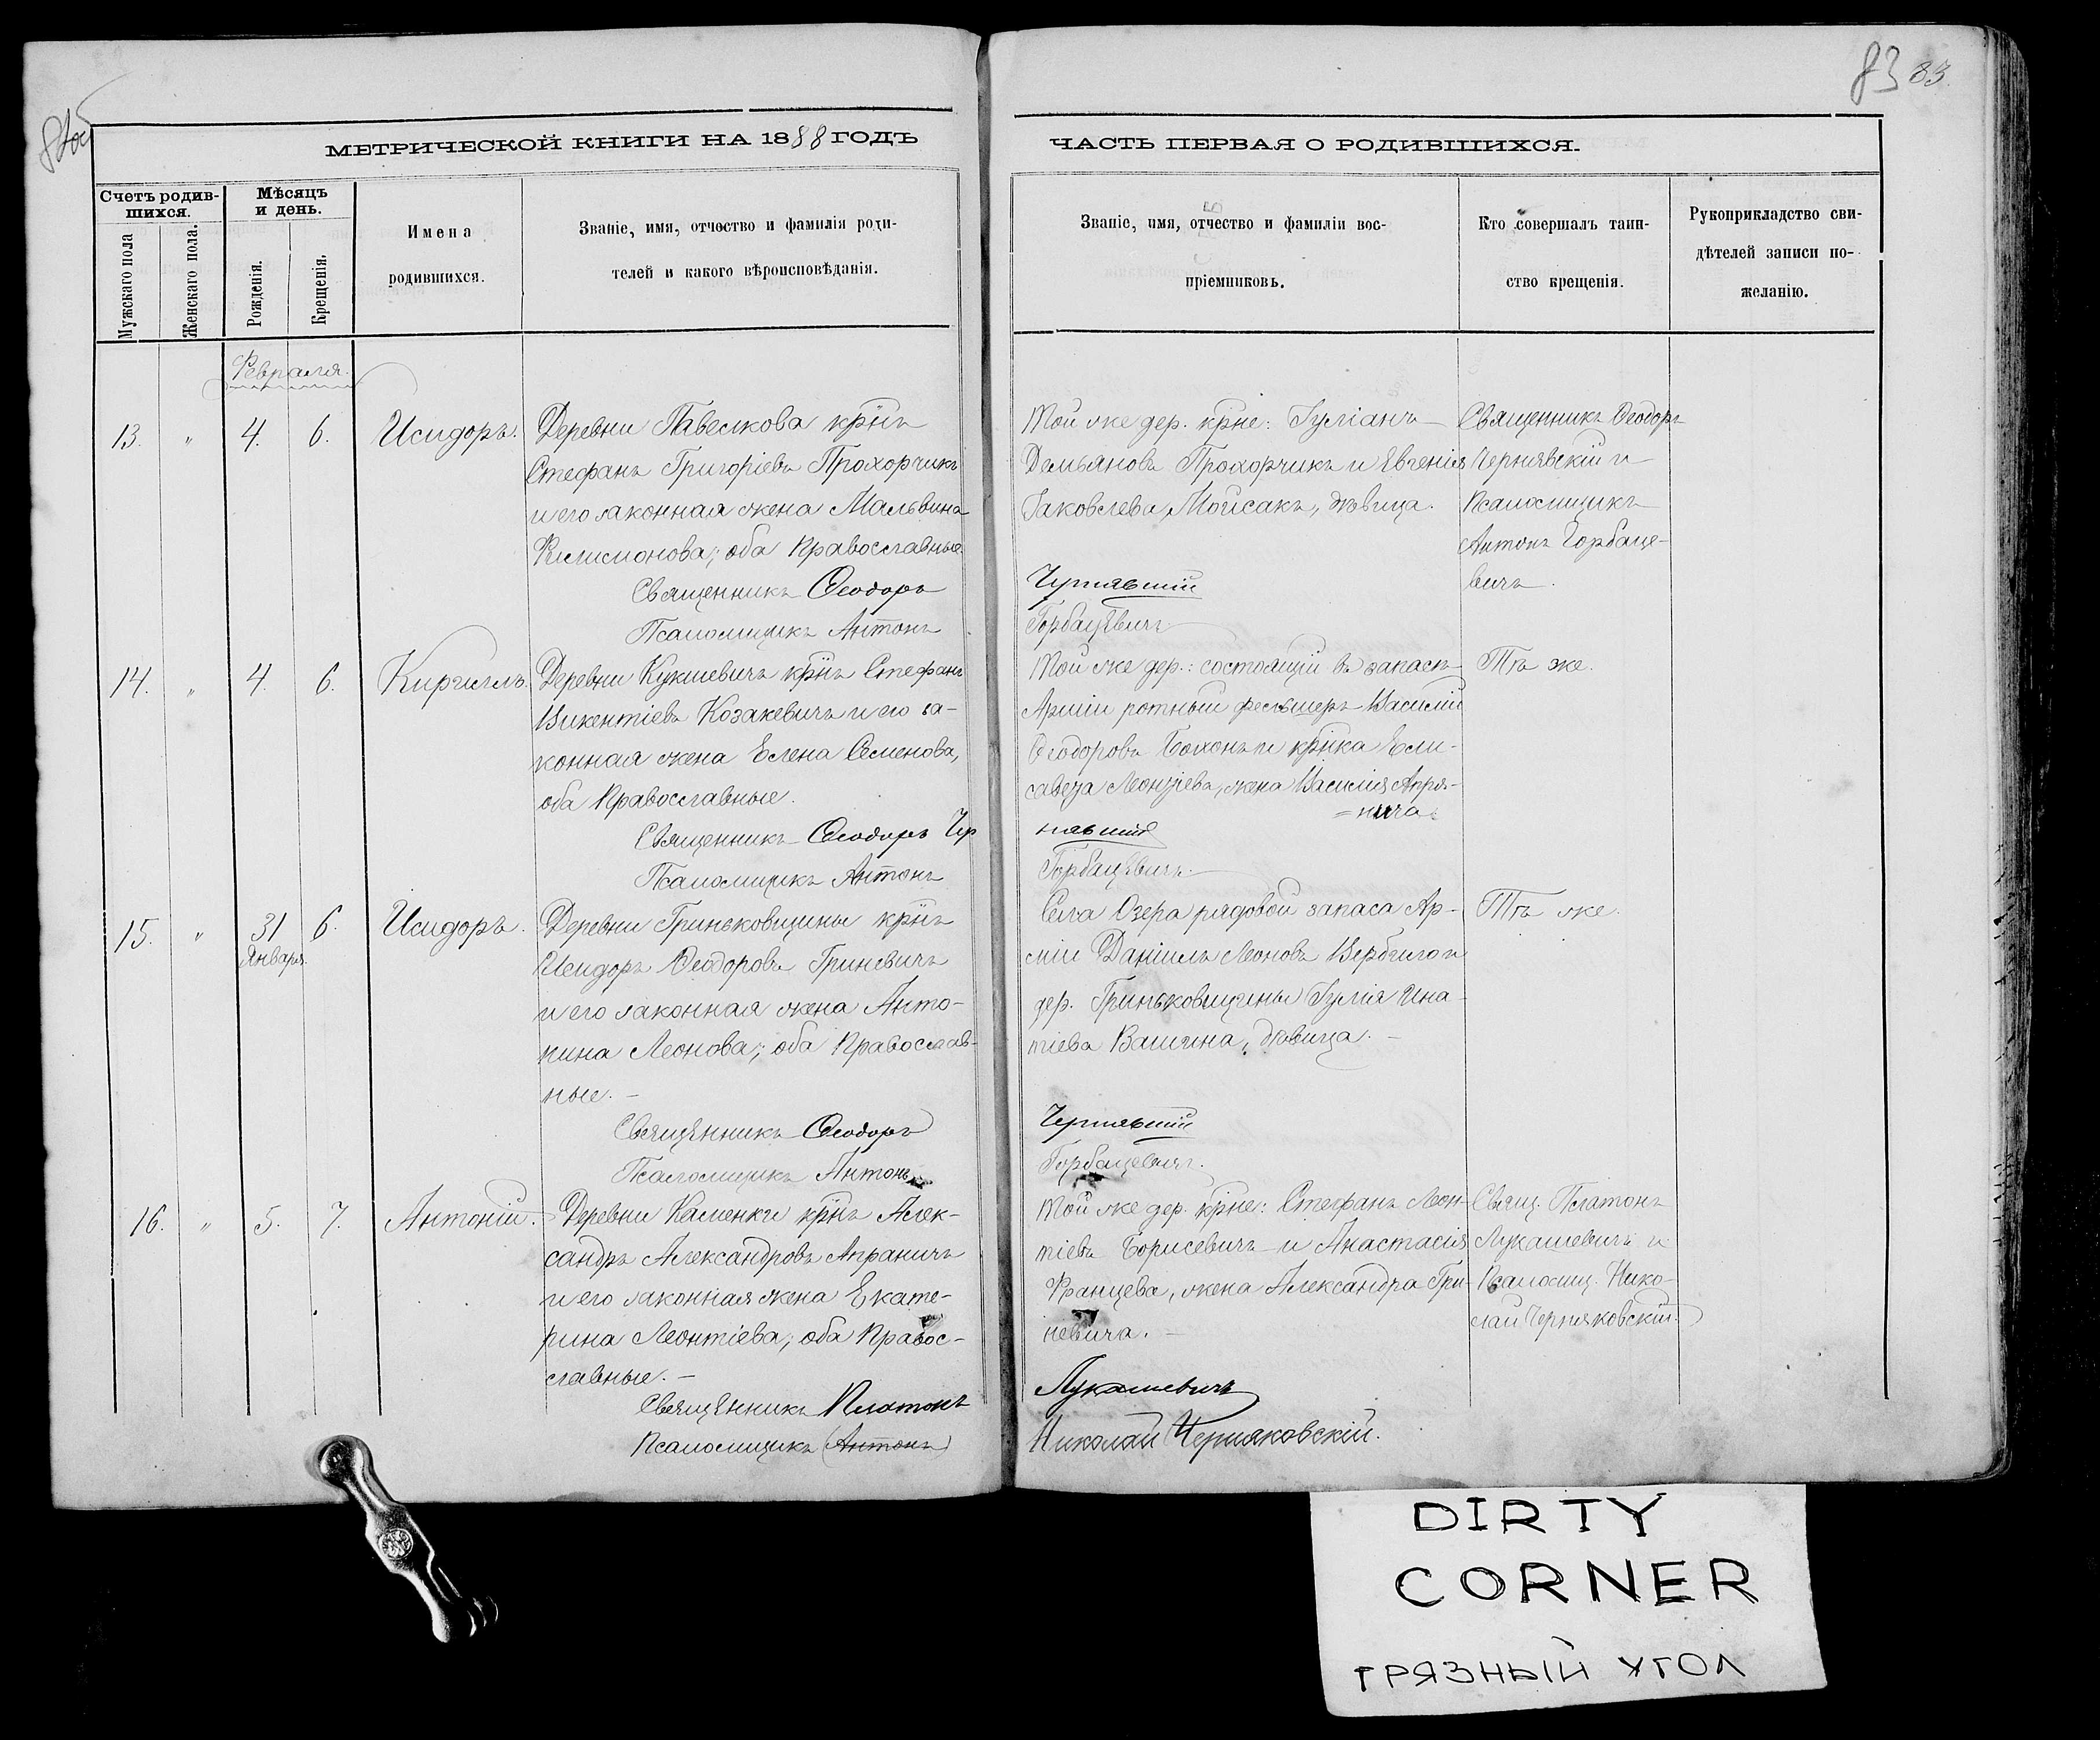 82об
83 83.
МЕТРИЧЕСКОЙ КНИГИ НА 1888 ГОДЪ
ЧАСТЬ ПЕРВАЯ О РОДИВШИХСЯ.
Счетъ родив-
шихся.
Мужскаго пола
Женскаго пола.
Мѣсяцъ
и день.
Рожденія.
Крещенія.
Имена
родившихся.
Званіе, имя, отчество и фамилія роди-
телей и какого вѣроисповѣданія.
Званіе, имя, отчество и фамиліи вос-
пріемниковъ.
Кто совершалъ таин-
ство крещенія.
Рукоприкладство сви-
дѣтелей записи по-
желанію.
Февраля.
13. " 4. 6. Исидоръ.
Деревни Павелкова крн͠ъ
Стефанъ Григоріевъ Прохорчикъ
и его законная жена Мальвина
Филимонова; оба Православные.
Священникъ Ѳеодоръ
Псаломщикъ Антонъ
Той же дер. крне: Іуліанъ
Демьяновъ Прохорчикъ и Евгенія
Іаковлева Мойсакъ, дѣвица.
Чернявскій
Горбацевичъ
Священникъ Ѳеодоръ
Чернявскій и
Псаломщикъ
Антонъ Горбаце-
вичъ.
14. " 4. 6. Кириллъ.
Деревни Кукшевичъ крнъ Стефанъ
Викентіевъ Козакевичъ и его за-
конная жена Елена Семенова,
оба Православные.
Священникъ Ѳеодоръ Чер
Псаломщикъ Антонъ
Той же дер.: состоящій въ запасѣ
Арміи ротный фельшеръ Василій
Ѳеодоровъ Бохонъ и крнка Ели-
савета Леонтіева, жена Василія Апря-
=нича.
нявскій
Горбацевичъ.
Тѣ же.
15. " 31 6. Исидоръ.
Января.
Деревни Гриньковщины крнъ
Исидоръ Ѳеодоровъ Гриневичъ
и его законная жена Анто-
нина Леонова; оба Православ-
ные. –
Священникъ Ѳеодоръ
Псаломщикъ Антонъ
Села Озера рядовой запаса Ар-
міи Даніилъ Леоновъ Вербило и
дер. Гриньковщины Іулія Гна-
тіева Вашина, дѣвица. –
Чернявскій
Горбацевичъ.
Тѣ же.
16. " 5. 7. Антоній.
Деревни Каменки крнъ Алек-
сандръ Александровъ Апраничъ
и его законная жена Екате-
рина Леонтіева; оба Правос-
славные. –
Священникъ Платонъ
Псаломщикъ (Антонъ)
Той же дер. крне: Стефанъ Леон-
тіевъ Борисевичъ и Анастасія
Францева, жена Александра Гри-
невича. –
Лукашевичъ
Николай Черняковскій.
Свящ. Платонъ
Лукашевичъ и
Псаломщ. Нико-
лай Черняковскій.
DIRTY
CORNER
ГРЯЗНЫЙ УГОЛ